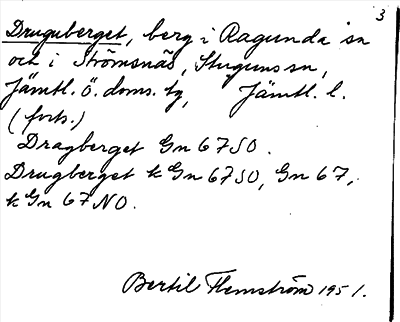 3
Druguberget, berg i Ragunda sn
och i Strömsnäs, Stuguns sn,
Jämtl. ö. doms. tg, Jämtl. l.
(forts.)
Dragberget Gn 67 SO.
Drugberget k Gn 67 SO, Gn 67,
k Gn 67 NO.
Bertil Flemström 1951.